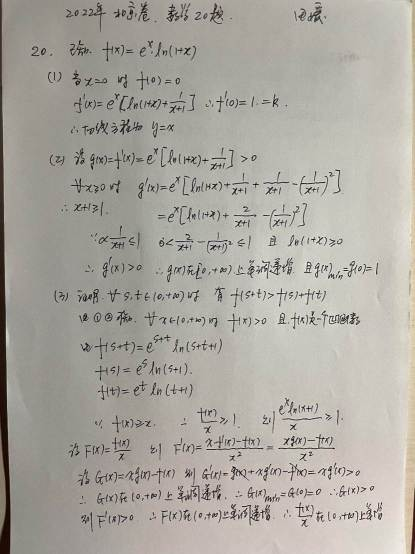 2022年 北京卷. 数学20题.
20. 已知 f(x)=eˣ·ln(1+x)
(1) 当x=0 时 f(0)=0
f'(x)=eˣ[ln(1+x)+1/(x+1)] ∴f'(0)=1.=k.
∴切线方程为 y=x
(2) 设 g(x)=f'(x)=eˣ[ln(1+x)+1/(x+1)]>0
∀x≥0 时 g'(x)=eˣ[ln(1+x)+1/(x+1)+1/(x+1)-(1/(x+1))²]
∴x+1≥1. =eˣ[ln(1+x)+2/(x+1)-(1/(x+1))²]
∵0<1/(x+1)≤1 0<2/(x+1)-1/(x+1)²≤1 且 ln(1+x)≥0
∴g'(x)>0 ∴g(x)在[0,+∞)上单调递增. 且g(x)min=g(0)=1
(3) 证明. ∀s,t∈(0,+∞)时 有 f(s+t)>f(s)+f(t)
由①②可知. ∀x∈(0,+∞)时 f(x)>0 且f(x)是一个凹函数
f(s+t)=eˢ⁺ᵗln(s+t+1)
f(s)=eˢln(s+1).
f(t)=eᵗln(t+1)
∵f(x)≥x. ∴f(x)/x≥1. 则 eˣln(x+1)/x≥1.
设F(x)=f(x)/x 则 F'(x)=(x·f'(x)-f(x))/x²=(xg(x)-f(x))/x²
设G(x)=xg(x)-f(x) 则G'(x)=g(x)+xg'(x)-f'(x)=xg'(x)>0
∴G(x)在(0,+∞)上单调递增. ∴G(x)min=G(0)=0 ∴G(x)>0
则F'(x)>0 ∴F(x)在(0,+∞)上单调递增. ∴f(x)/x在(0,+∞)上单增